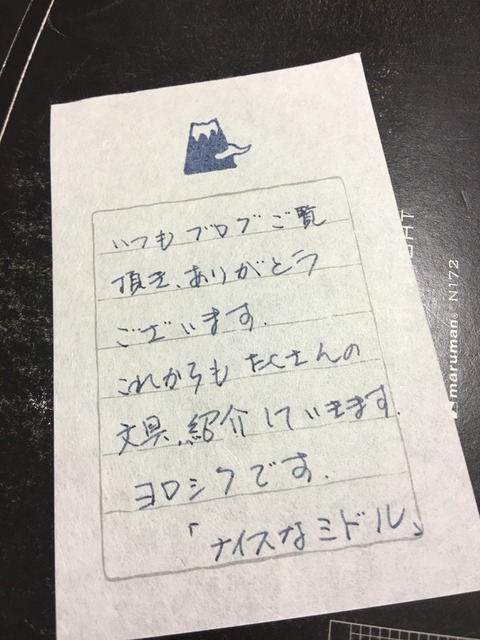 いつもブログご覧
頂き、ありがとう
ございます.
これからもたくさんの
文具、紹介していきます.
ヨロシクです.
「ナイスなミドル」
maruman® N172